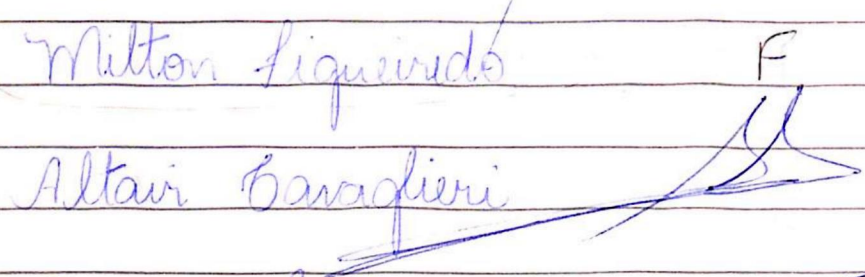 Milton Figueiredo F
Altair Cavaglieri